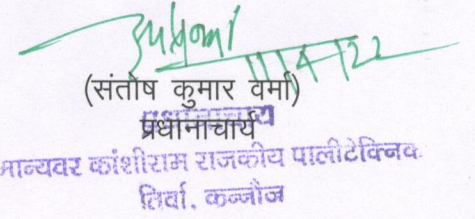 11/4/22
(संतोष कुमार वर्मा)
प्रधानाचार्य
प्रधानाचार्य
मान्यवर कांशीराम राजकीय पालीटेक्निक
तिर्वा, कन्नौज